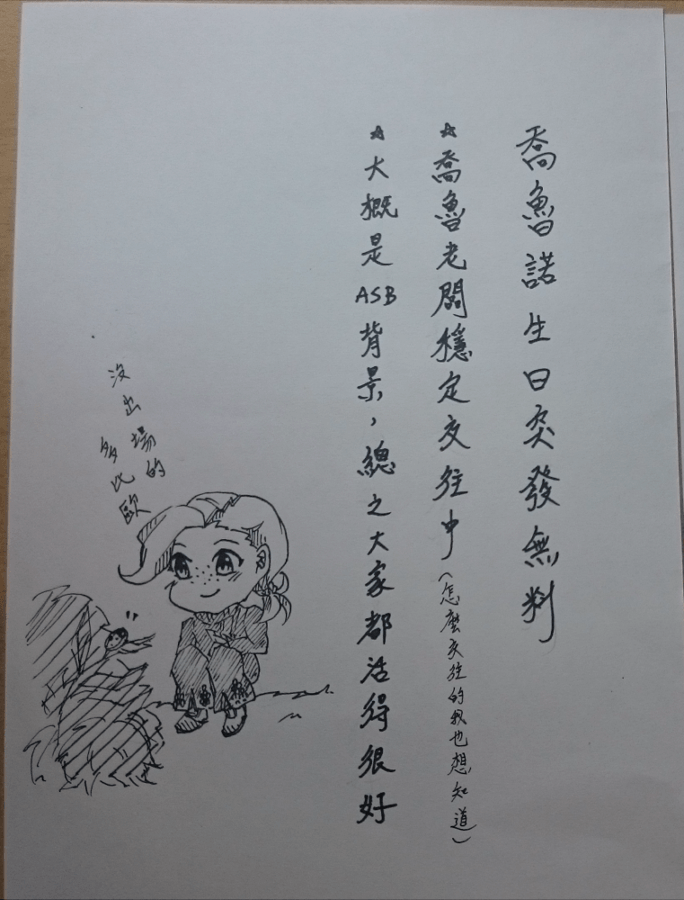 喬魯諾生日突發無料
☆喬魯老闆穩定交往中(怎麼交往的我也想知道)
☆大概是ASB背景,總之大家都活得很好
沒出場的
多比歐